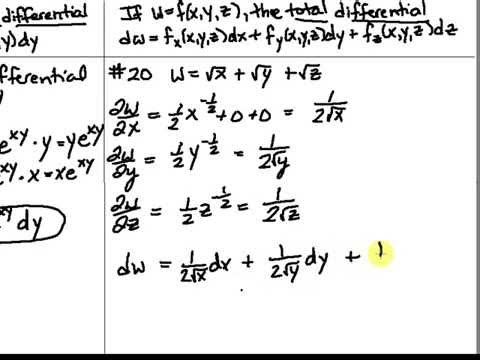 differential
y)dy
fferential
e^xy · y = ye^xy
xy · x = xe^xy
xy dy
If w=f(x,y,z), the total differential
dw = fx(x,y,z)dx + fy(x,y,z)dy + fz(x,y,z)dz
#20 w = √x + √y + √z
∂w/∂x = 1/2 x^-1/2 + 0 + 0 = 1/2√x
∂w/∂y = 1/2 y^-1/2 = 1/2√y
∂w/∂z = 1/2 z^-1/2 = 1/2√z
dw = 1/2√x dx + 1/2√y dy + 1